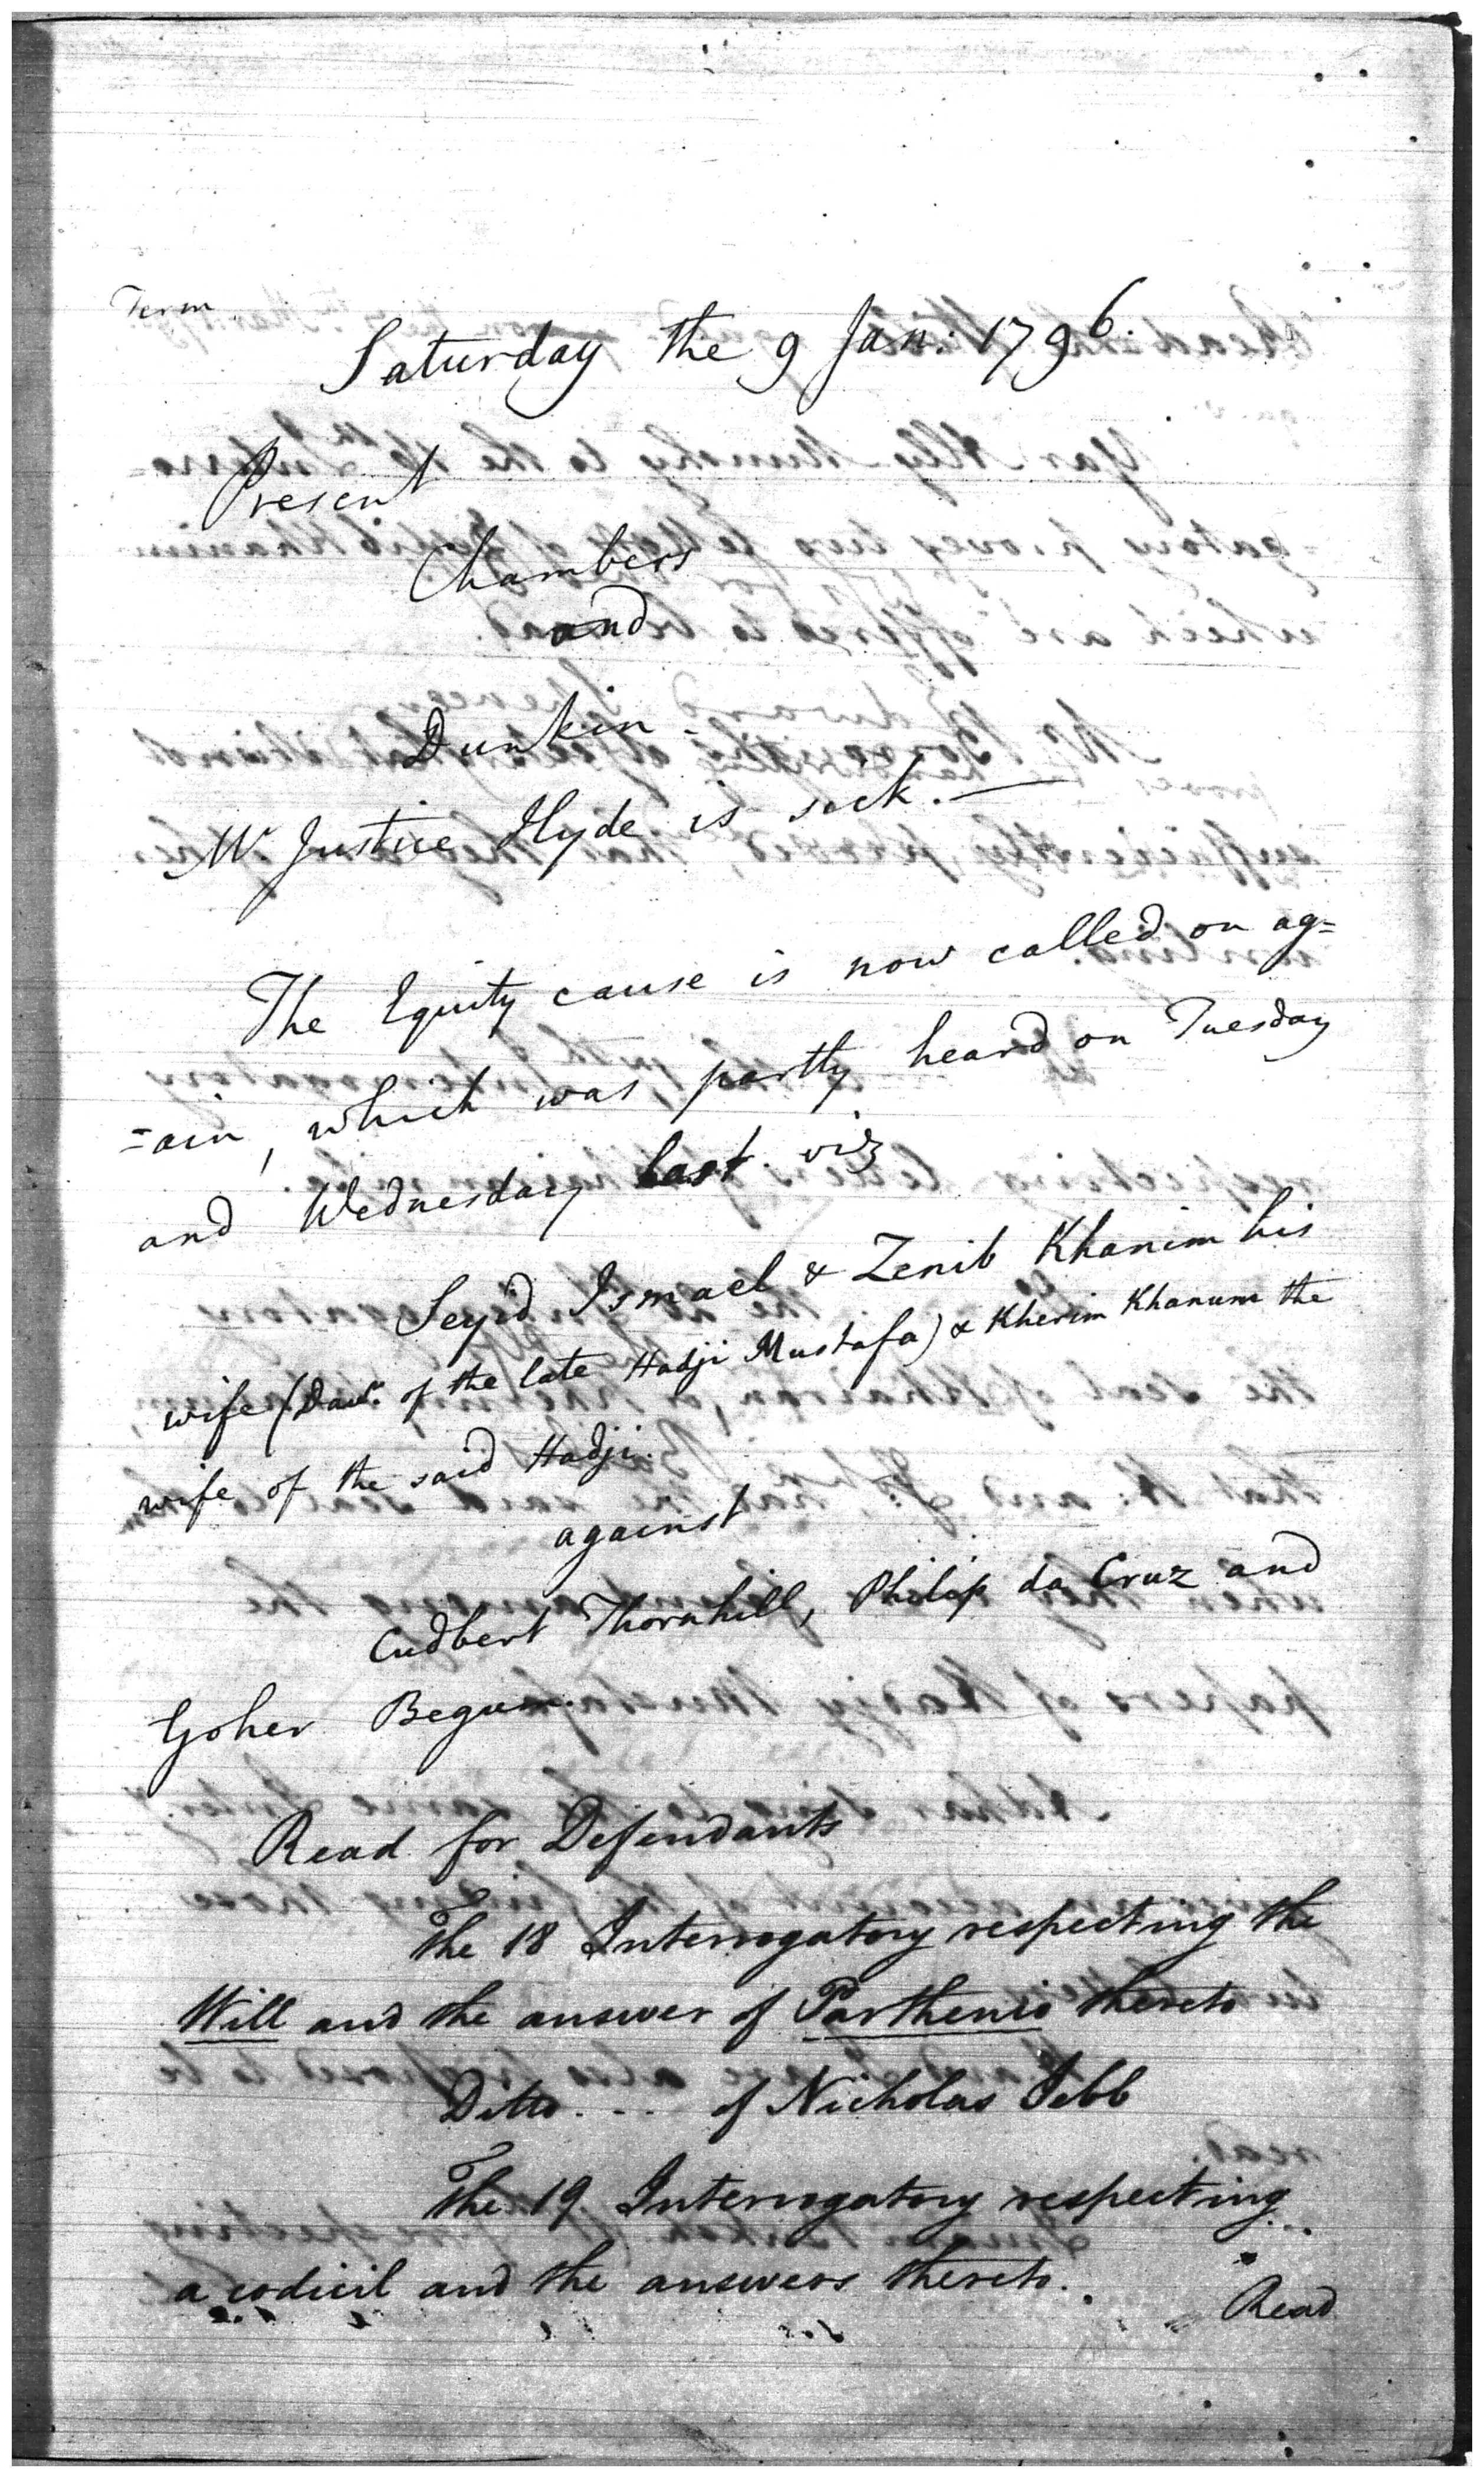 Term
Saturday the 9 Jan: 1796.
Present
Chambers
and
Dunkin.
Mr Justice Hyde is sick. —
The Equity cause is now called on ag=
=ain, which was partly heard on Tuesday
and Wednesday last viz
Seyid Ismael & Zenib Khanim his
wife (Daur. of the late Hadji Mustafa) & Kherim Khanum the
wife of the said Hadji.
against
Cudbert Thornhill, Philip da Cruz and
Goher Begum.
Read for Defendants
The 18 Interrogatory respecting the
Will and the answer of Parthenio thereto
Ditto. - - of Nicholas Jebb
The 19 Interrogatory respecting
a codicil and the answers thereto.
Read